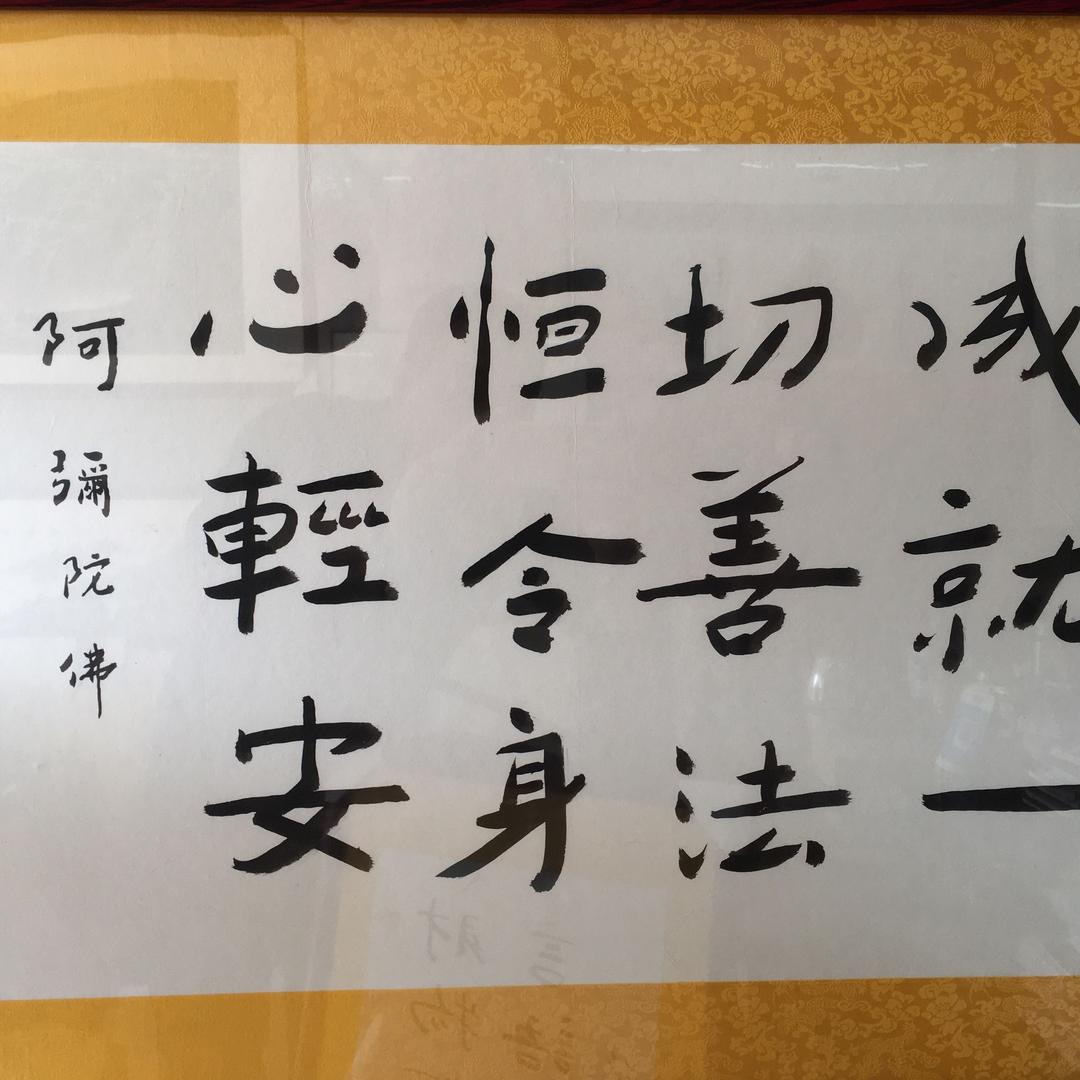 成就一
切善法
恒令身
心輕安
阿彌陀佛